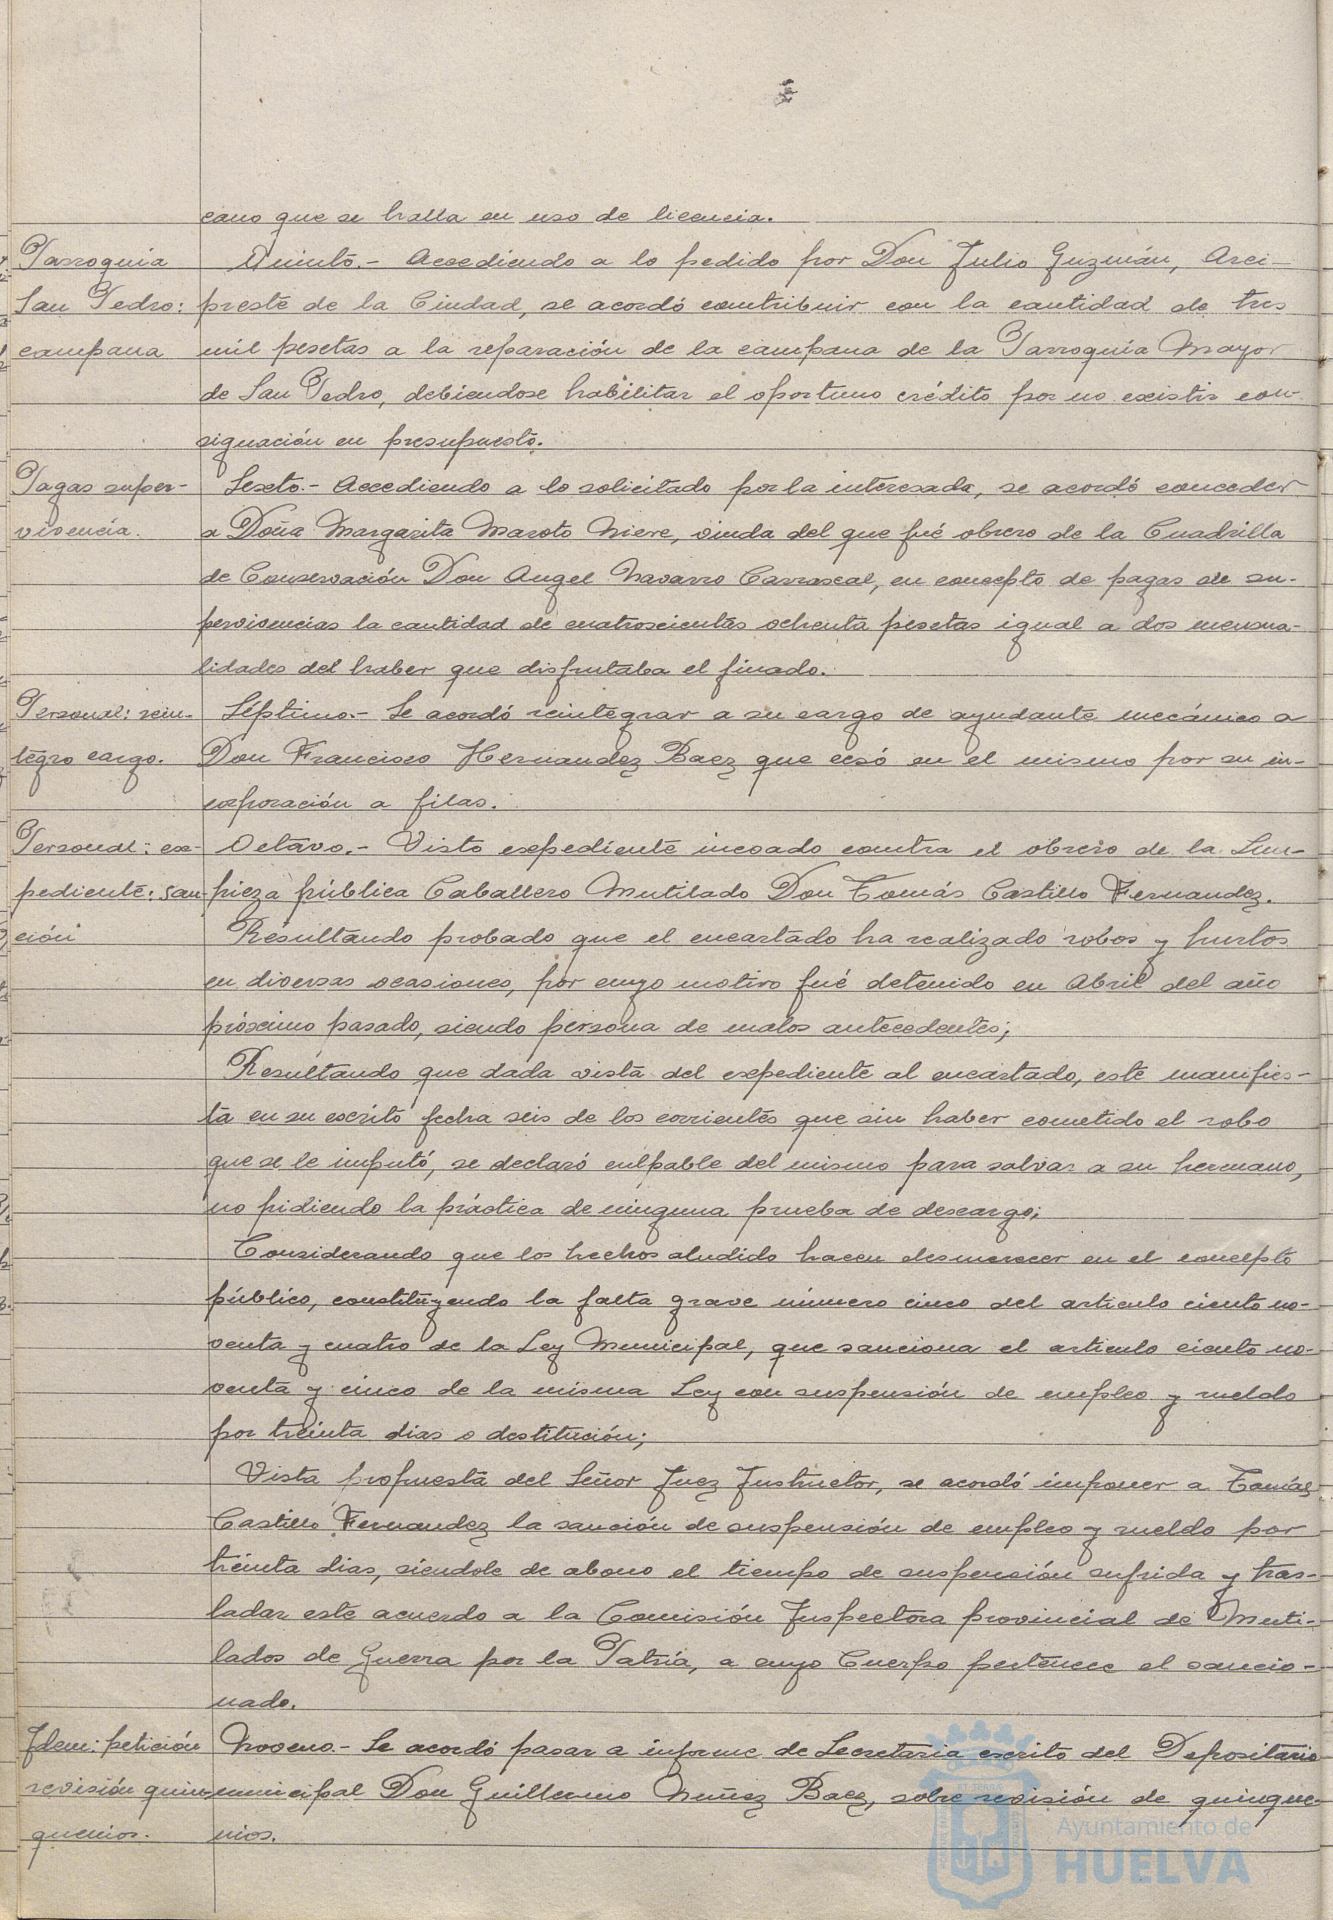 cano que se halla en uso de licencia.
Parroquia
San Pedro:
campana
Quinto.- Accediendo a lo pedido por Don Julio Guzmán, Arci-
preste de la Ciudad, se acordó contribuir con la cantidad de tres
mil pesetas a la reparación de la campana de la Parroquia Mayor
de San Pedro, debiendose habilitar el oportuno crédito por no existir con-
signación en presupuesto.
Pagas super-
vivencia.
Sexto.- Accediendo a lo solicitado por la interesada, se acordó conceder
a Doña Margarita Maroto Niere, viuda del que fué obrero de la Cuadrilla
de Conservación Don Angel Navarro Carrascal, en concepto de pagas de su-
pervivencias la cantidad de cuatroscientas ochenta pesetas igual a dos mensua-
lidades del haber que disfrutaba el finado.
Personal: rein-
tegro cargo.
Séptimo.- Se acordó reintegrar a su cargo de ayudante mecánico a
Don Francisco Hernandez Baez que cesó en el mismo por su in-
corporación a filas.
Personal: ex-
pediente: san-
ción
Octavo.- Visto expediente incoado contra el obrero de la Lim-
pieza pública Caballero Mutilado Don Tomás Castillo Fernandez.
Resultando probado que el encartado ha realizado robos y hurtos
en diversas ocasiones, por cuyo motivo fué detenido en Abril del año
próximo pasado, siendo persona de malos antecedentes;
Resultando que dada vista del expediente al encartado, este manifies-
ta en su escrito fecha seis de los corrientes que sin haber cometido el robo
que se le imputó, se declaró culpable del mismo para salvar a su hermano,
no pidiendo la práctica de ninguna prueba de descargo;
Considerando que los hechos aludido hacen desmerecer en el concepto
público, constituyendo la falta grave número cinco del articulo ciento no-
venta y cuatro de la Ley Municipal, que sanciona el articulo ciento no-
venta y cinco de la misma Ley con suspensión de empleo y sueldo
por treinta dias o destitución;
Vista propuesta del Señor Juez Instructor, se acordó imponer a Tomás
Castillo Fernandez la sanción de suspensión de empleo y sueldo por
treinta dias, siendole de abono el tiempo de suspensión sufrida y tras-
ladar este acuerdo a la Comisión Inspectora provincial de Muti-
lados de Guerra por la Patria, a cuyo Cuerpo pertenece el sancio-
nado.
Idem: petición
revisión quin-
quenios.
Noveno.- Se acordó pasar a informe de Secretaria escrito del Depositario
municipal Don Guillermo Nuñez Baez, sobre revisión de quinque-
nios.
Ayuntamiento de
HUELVA